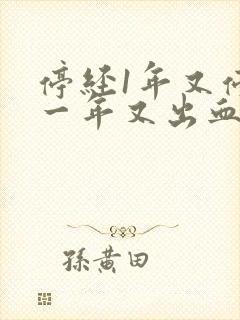 停经1年又
一年又出血
孫黄田